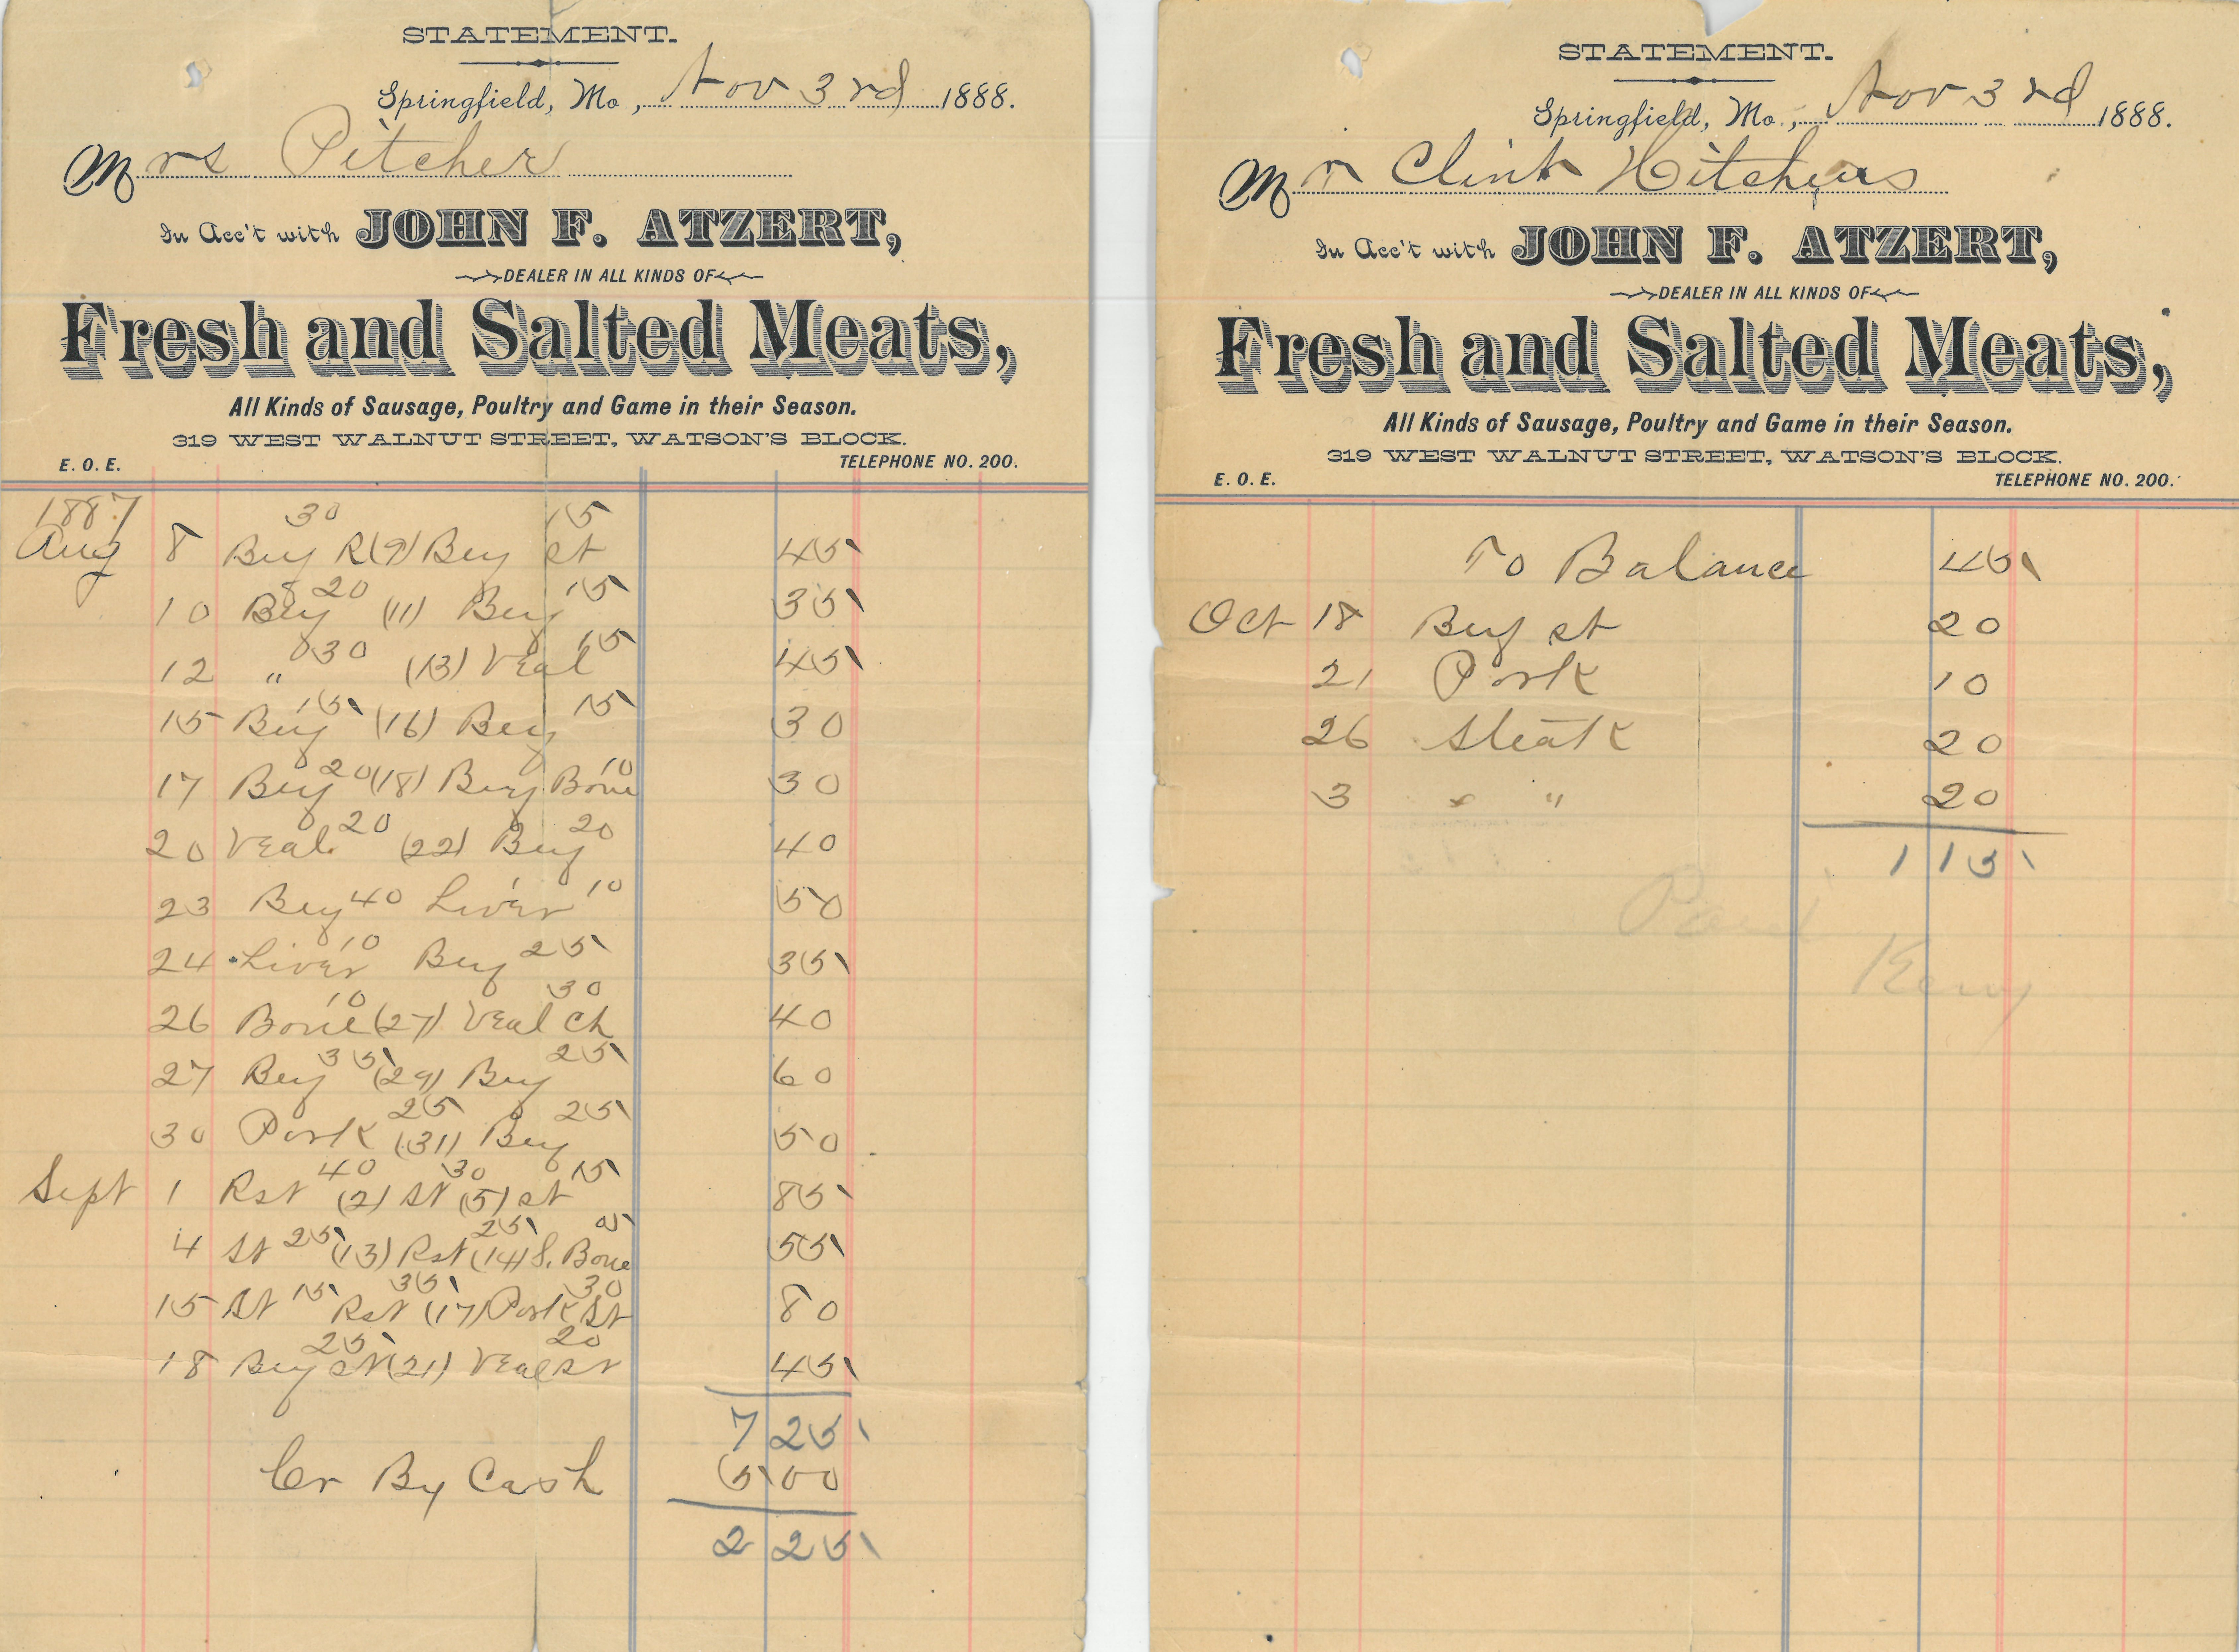 STATEMENT.
Springfield, Mo., Nov 3rd 1888.
Mrs Pitcher
In Acc't with JOHN F. ATZERT,
DEALER IN ALL KINDS OF
Fresh and Salted Meats,
All Kinds of Sausage, Poultry and Game in their Season.
319 WEST WALNUT STREET, WATSON'S BLOCK.
E. O. E. TELEPHONE NO. 200.
1887
30 15
Aug 8 Beef R (9) Beef st 45
20 15
10 Beef (11) Beef 35
30 15
12 " (13) Veal 45
15 15
15 Beef (16) Beef 30
20 10
17 Beef (18) Beef Bone 30
20 20
20 Veal (22) Beef 40
23 Beef 40 Liver 10 50
10
24 Liver Beef 25 35
10 30
26 Bone (27) Veal Ch 40
35 25
27 Beef (29) Beef 60
25 25
30 Pork (31) Beef 50
40 30 15
Sept 1 Rst (2) St (5) st 85
25 25 05
4 St (13) Rst (14) S. Bone 55
15 35 30
15 St Rst (17) Pork St 80
25 20
18 Beef St (21) Veal St 45
7 25
Cr By Cash 5 00
2 25
STATEMENT.
Springfield, Mo., Nov 3rd 1888.
Mr Clint
In Acc't with JOHN F. ATZERT,
DEALER IN ALL KINDS OF
Fresh and Salted Meats,
All Kinds of Sausage, Poultry and Game in their Season.
319 WEST WALNUT STREET, WATSON'S BLOCK.
E. O. E. TELEPHONE NO. 200.
To Balance 45
Oct 18 Beef st 20
21 Pork 10
26 Steak 20
3 " " 20
1 15
Paid